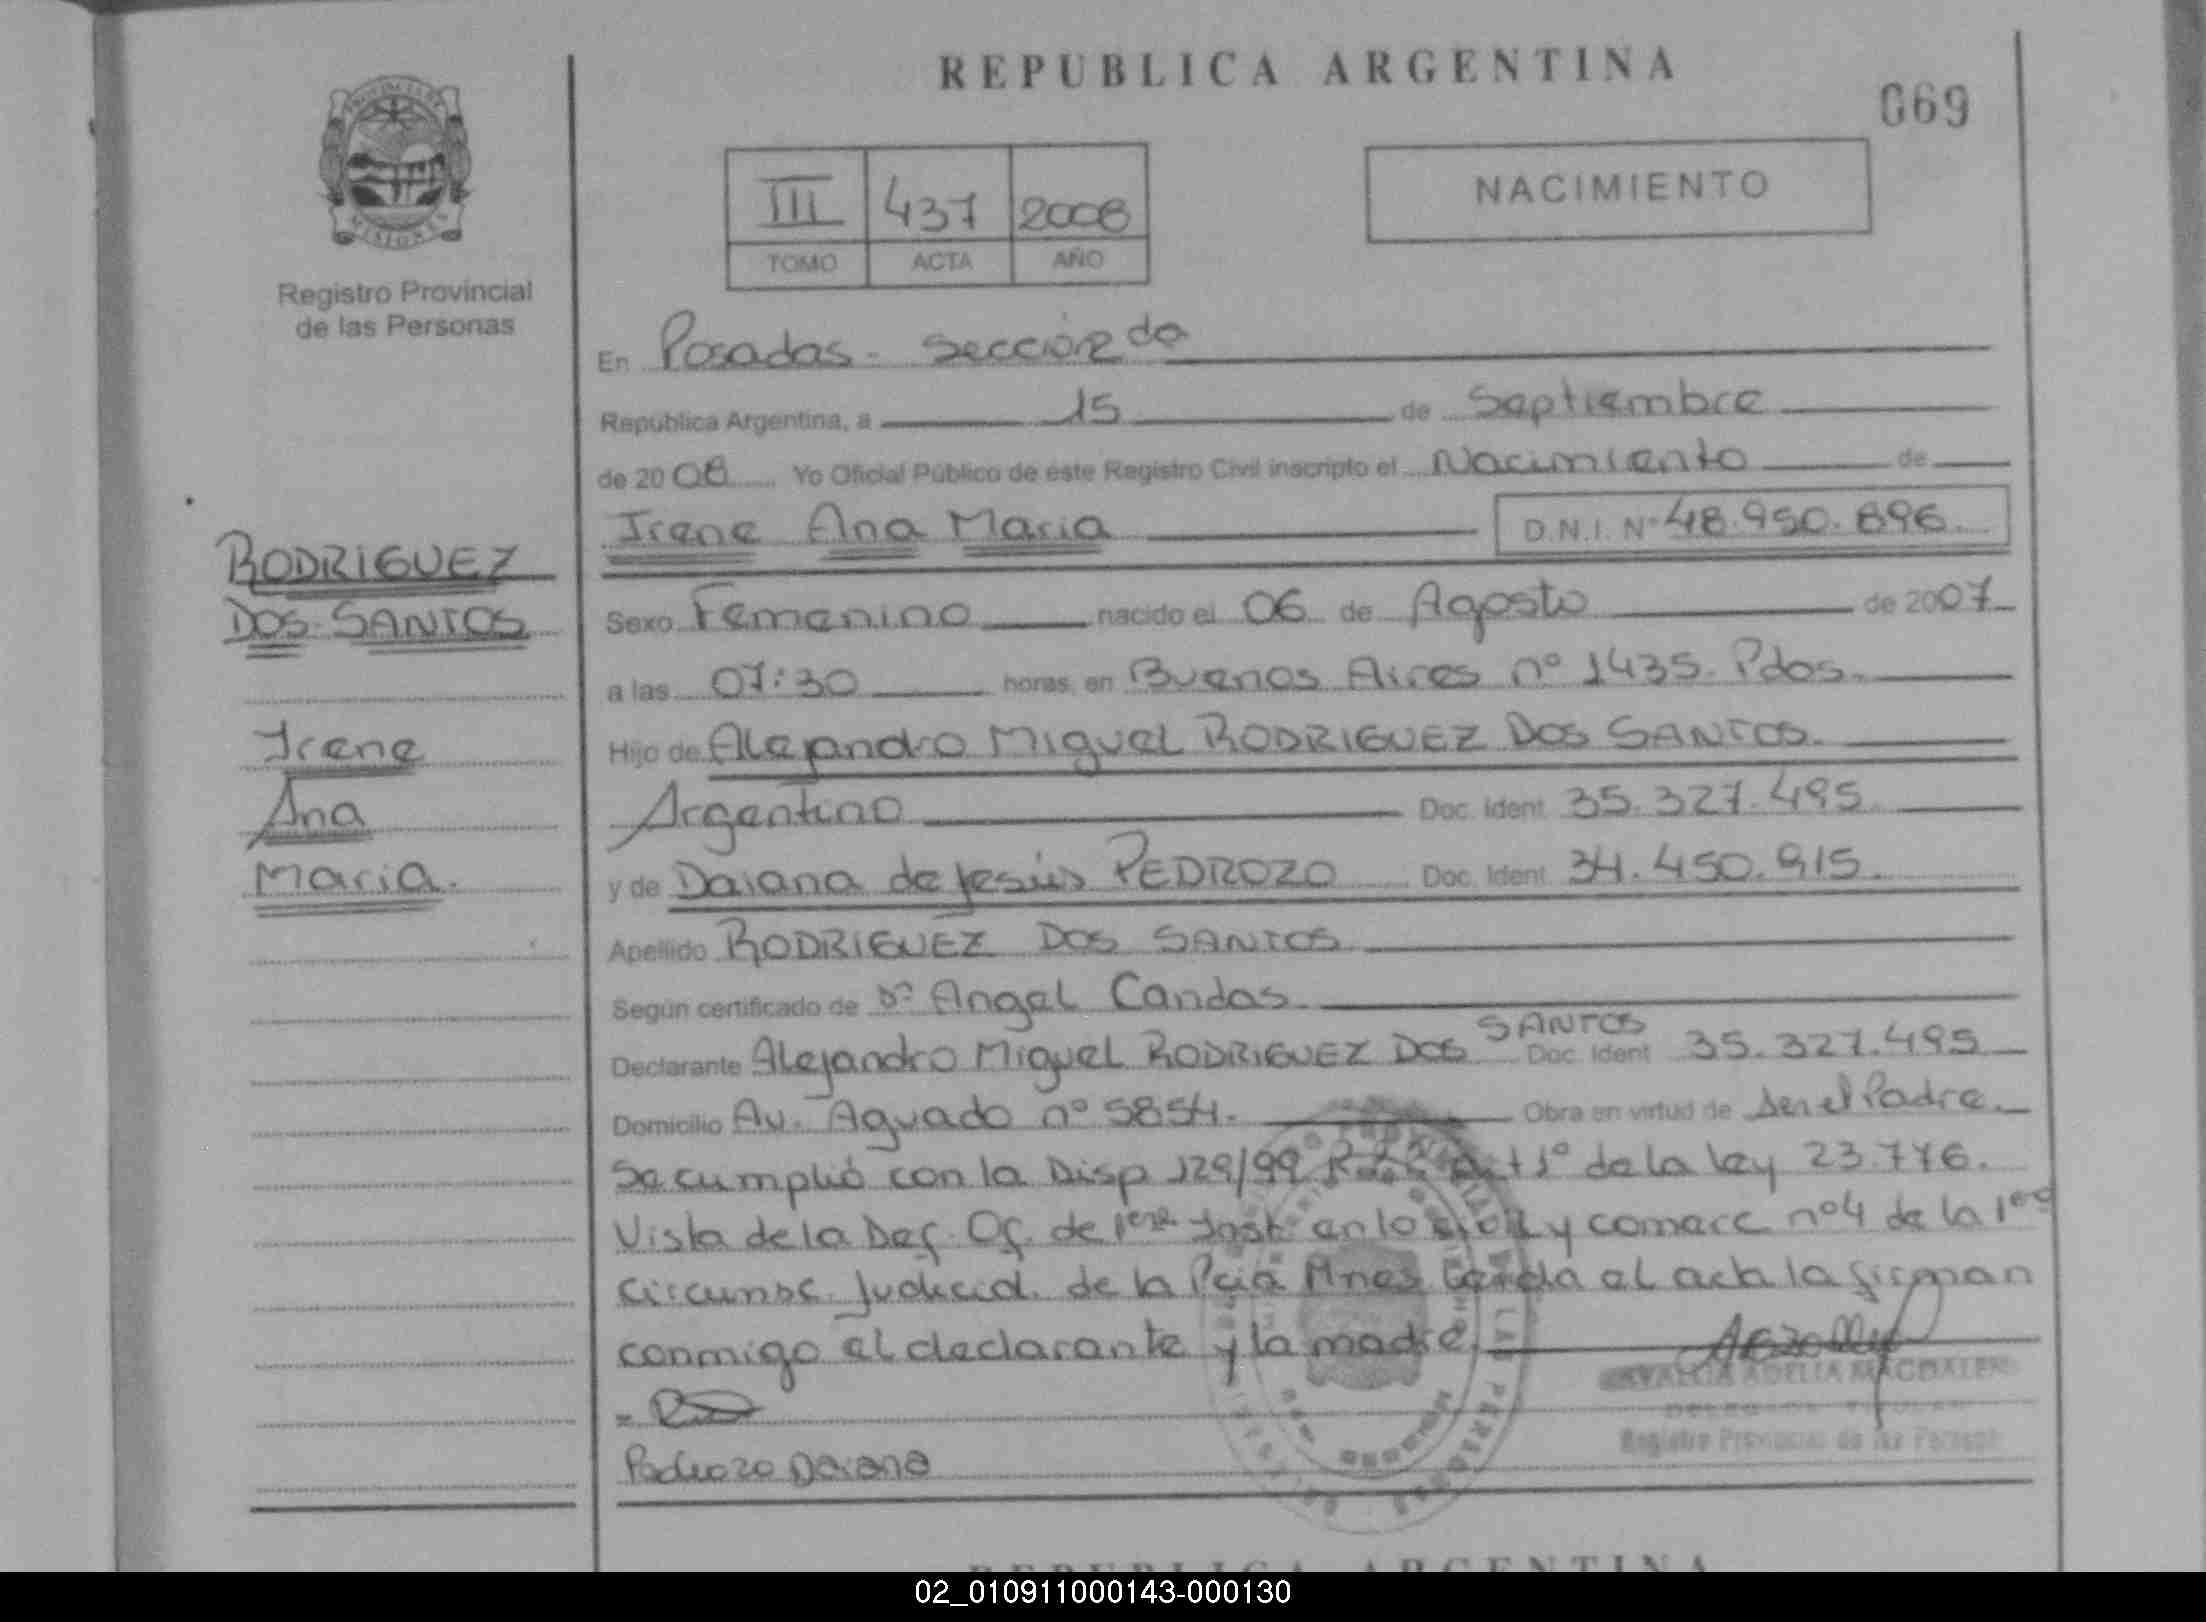 REPUBLICA ARGENTINA
069
PROVINCIA DE
MISIONES
Registro Provincial
de las Personas
III 437 2008
TOMO ACTA AÑO
NACIMIENTO
En Posadas - Sección 2da
República Argentina, a 15 de Septiembre
de 2008 Yo Oficial Público de este Registro Civil inscripto el Nacimiento de
Irene Ana Maria D.N.I. Nº 48.950.896.
RODRIGUEZ
DOS SANTOS
Irene
Ana
Maria.
Sexo Femenino nacido el 06 de Agosto de 2007
a las 07:30 horas, en Buenos Aires nº 1435. Pdas.
Hijo de Alejandro Miguel RODRIGUEZ DOS SANTOS.
Argentino Doc. Ident. 35.327.495
y de Daiana de Jesús PEDROZO Doc. Ident. 34.450.915.
Apellido RODRIGUEZ DOS SANTOS
Según certificado de Dr Angel Candas
Declarante Alejandro Miguel RODRIGUEZ DOS SANTOS Doc. Ident 35.327.495
Domicilio Av. Aguado nº 5854. Obra en virtud de ser el Padre.
Se cumplió con la Disp 129/99 Art 1º de la ley 23.776.
Vista de la Def. Of. de 1era Inst en lo civil y comerc nº4 de la 1era
circunsc. Judicial. de la Pcia Mnes Leída el acta la firman
conmigo el declarante y la madre
ADELIA MAGDALENA
Registro Provincial de las Personas
Pedrozo Daiana
REPUBLICA ARGENTINA
02_010911000143-000130